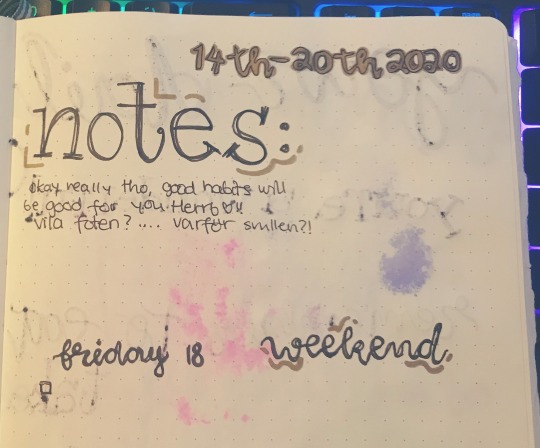 14th-20th 2020
notes:
okay really tho, good habits will
be good for you
vila foten? .... varför svullen?!
friday 18
weekend